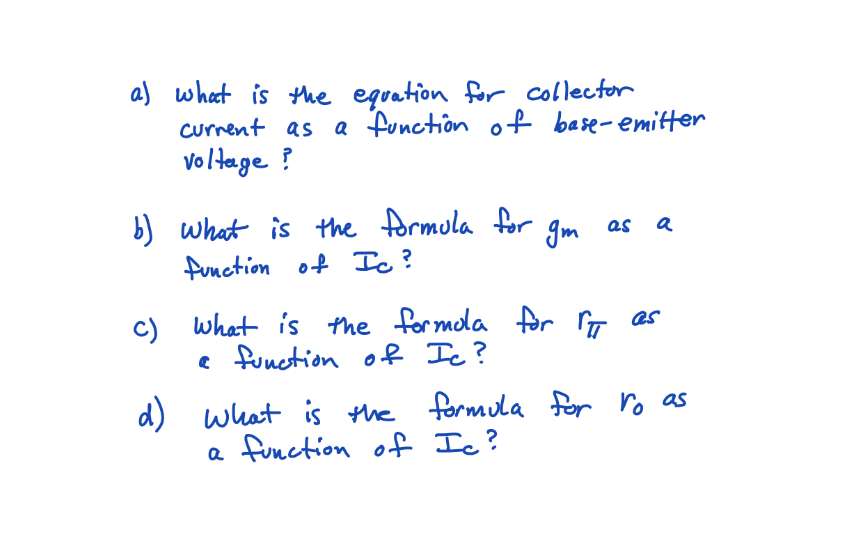 a) what is the equation for collector
current as a function of base-emitter
voltage?
b) what is the formula for gm as a
function of Ic?
c) what is the formula for rπ as
a function of Ic?
d) what is the formula for ro as
a function of Ic?